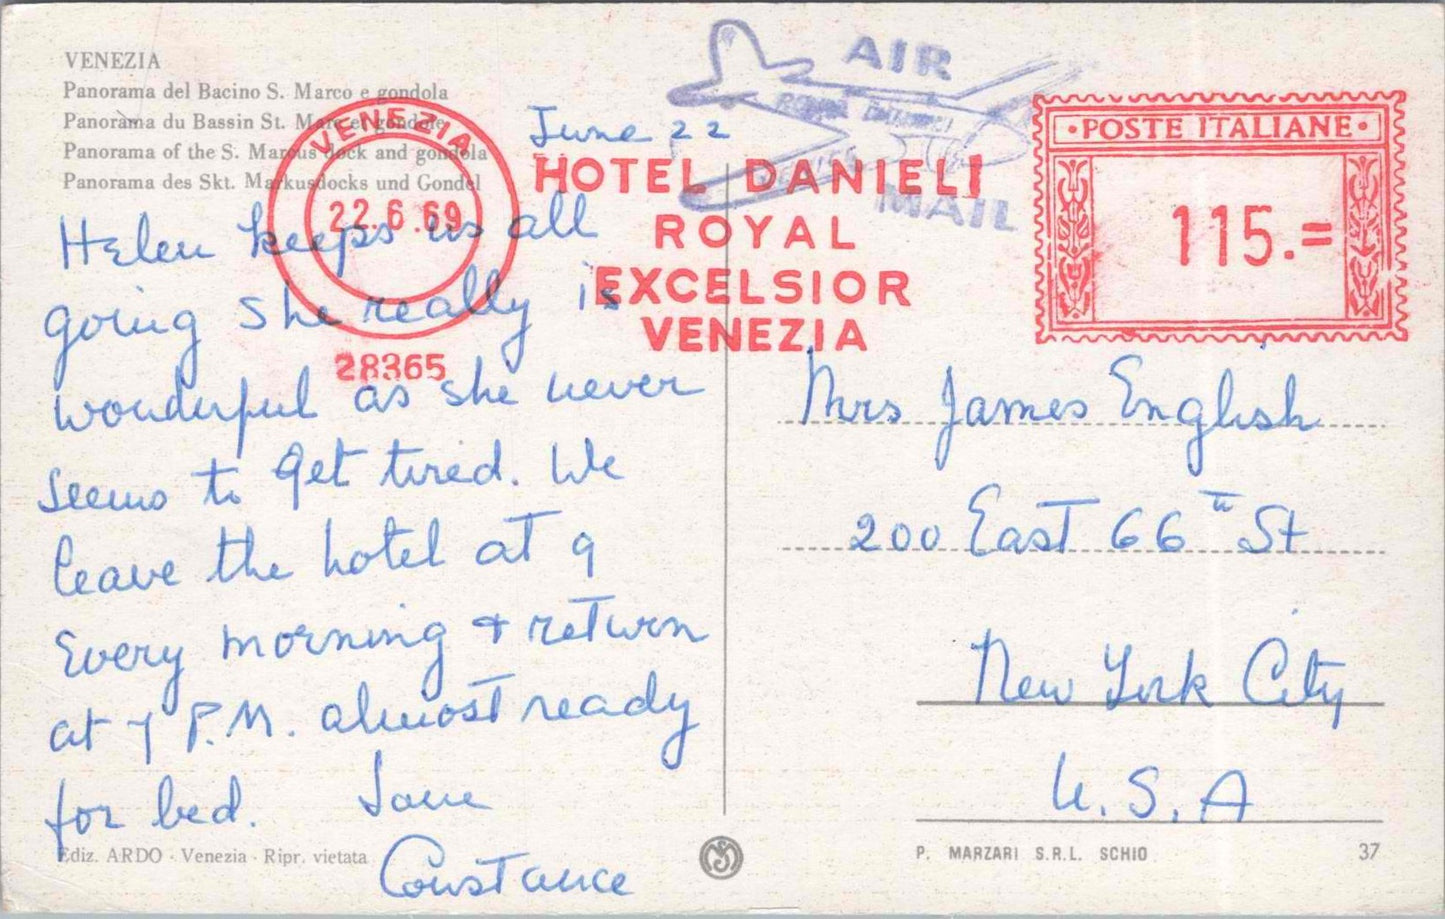 VENEZIA
Panorama del Bacino S. Marco e gondola
Panorama du Bassin St. Marc et gondole
Panorama of the S. Marcus dock and gondola
Panorama des Skt. Markusdocks und Gondel
VENEZIA
22.6.69
28365
June 22
HOTEL DANIELI
ROYAL
EXCELSIOR
VENEZIA
AIR
ROYAL DANIELI
VENICE
MAIL
•POSTE ITALIANE•
115.=
Helen keeps us all
going She really is
wonderful as she never
seems to get tired. We
leave the hotel at 9
Every morning + return
at 7 P.M. almost ready
for bed. Love
Constance
Mrs James English
200 East 66th St
New York City
U.S.A
Ediz. ARDO - Venezia - Ripr. vietata
P. MARZARI S.R.L. SCHIO
37